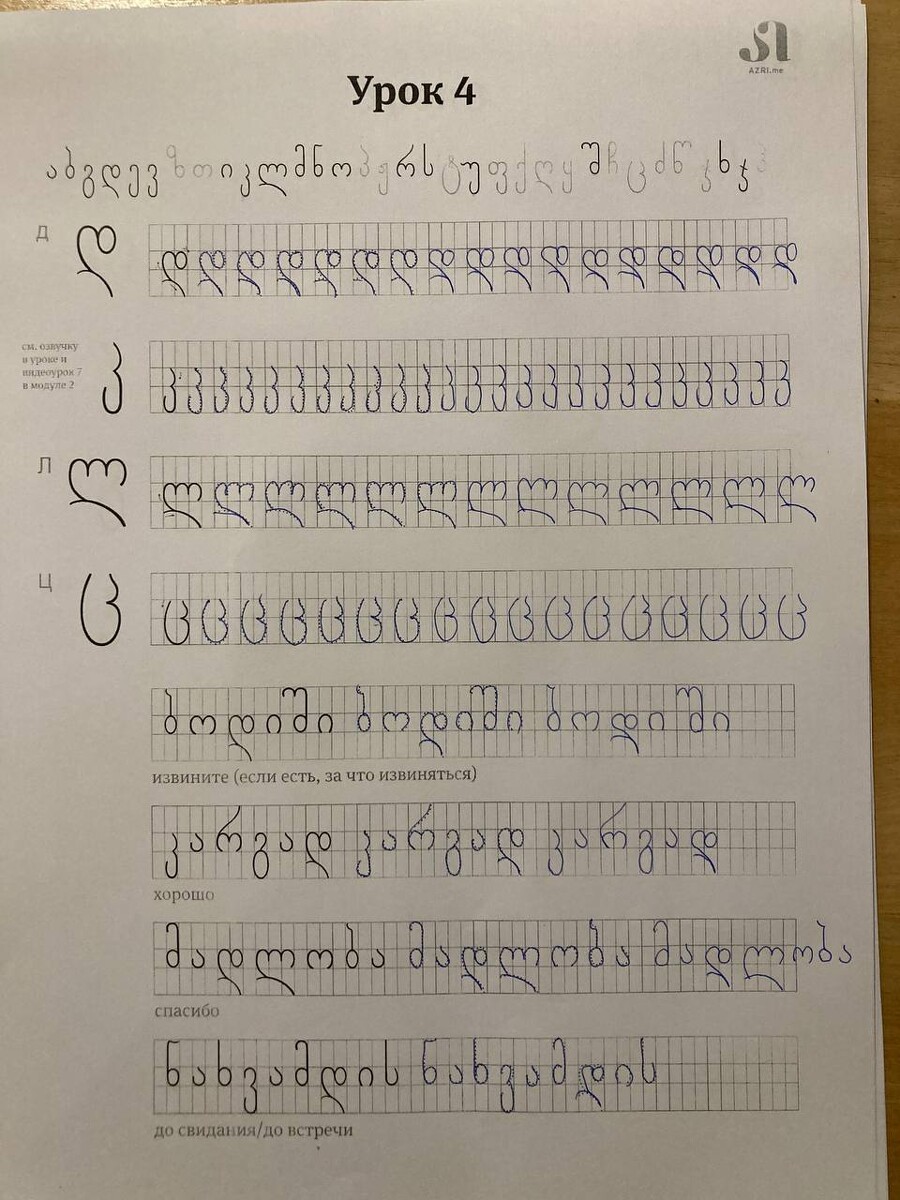 AZRI.me
Урок 4
აბგდევზთიკლმნოპჟრსტუფქღყშჩცძწჭხჯჰ
Д დ დ დ დ დ დ დ დ დ დ დ დ დ დ დ დ დ დ
см. озвучку
в уроке и
видеоурок 7
в модуле 2
კ კ კ კ კ კ კ კ კ კ კ კ კ კ კ კ კ კ კ კ კ კ კ კ კ კ
Л ლ ლ ლ ლ ლ ლ ლ ლ ლ ლ ლ ლ ლ ლ
Ц ც ც ც ც ც ც ც ც ც ც ც ც ც ც ც ც ც ც
ბოდიში ბოდიში ბოდიში
извините (если есть, за что извиняться)
კარგად კარგად კარგად
хорошо
მადლობა მადლობა მადლობა
спасибо
ნახვამდის ნახვამდის
до свидания/до встречи